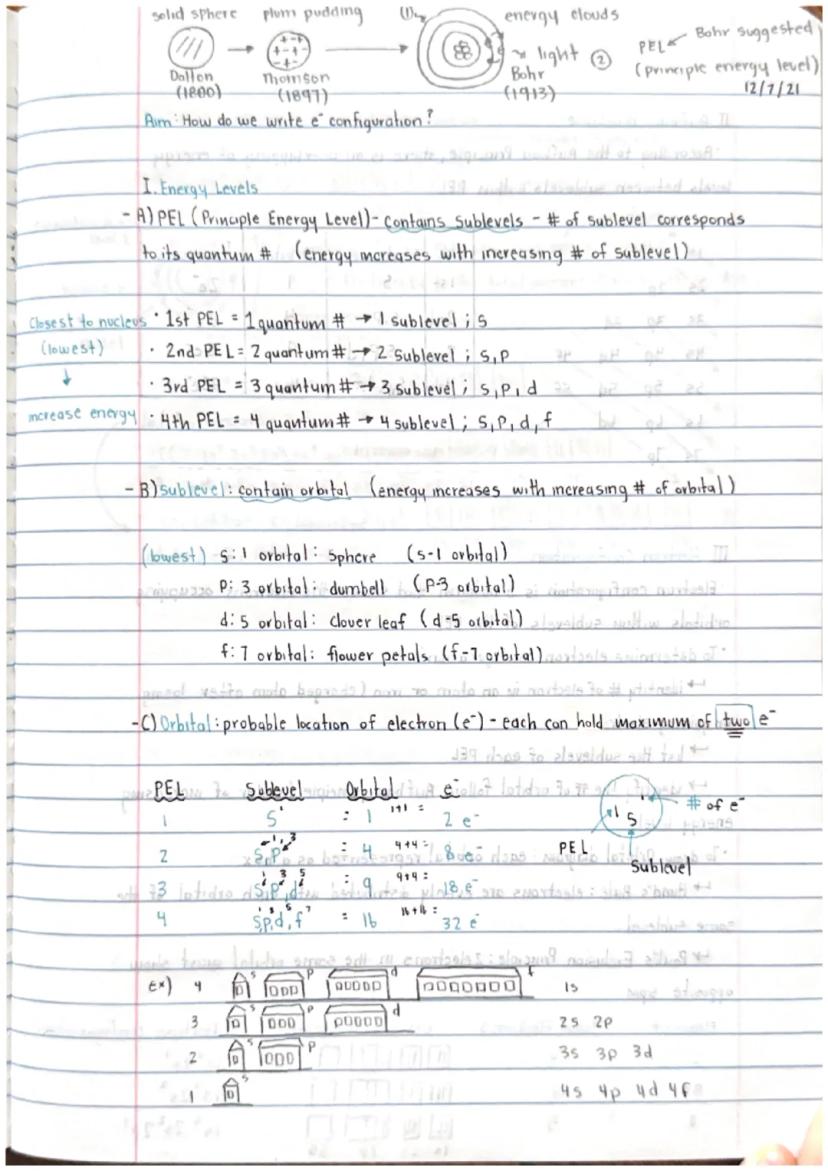 solid sphere plum pudding (1) energy clouds
light (2) PEL Bohr suggested
(principle energy level)
Dalton Thomson Bohr
(1800) (1897) (1913) 12/7/21
Aim: How do we write e⁻ configuration?
I. Energy Levels
- A) PEL (Principle Energy Level) - contains sublevels - # of sublevel corresponds
to its quantum # (energy increases with increasing # of sublevel)
closest to nucleus · 1st PEL = 1 quantum # → 1 sublevel ; s
(lowest) · 2nd PEL = 2 quantum # → 2 sublevel ; s, p
↓ · 3rd PEL = 3 quantum # → 3 sublevel ; s, p, d
increase energy · 4th PEL = 4 quantum # → 4 sublevel ; s, p, d, f
- B) sublevel : contain orbital (energy increases with increasing # of orbital)
(lowest) s: 1 orbital : sphere (s-1 orbital)
p: 3 orbital : dumbell (p-3 orbital)
d: 5 orbital : clover leaf (d-5 orbital)
f: 7 orbital : flower petals (f-7 orbital)
- C) Orbital : probable location of electron (e⁻) - each can hold maximum of two e⁻
PEL Sublevel Orbital e⁻
1 S¹ : 1 1+1 = 2 e⁻ 1 S¹ # of e⁻
2 S,P 1 3 : 4 4+4 = 8 e⁻ PEL Sublevel
3 S,P,d 1 3 5 : 9 9+9 = 18 e⁻
4 S,P,d,f 1 3 5 7 = 16 16+16 = 32 e⁻
ex) 4 s p d f 1s
3 s p d 2s 2p
2 s p 3s 3p 3d
1 s 4s 4p 4d 4f